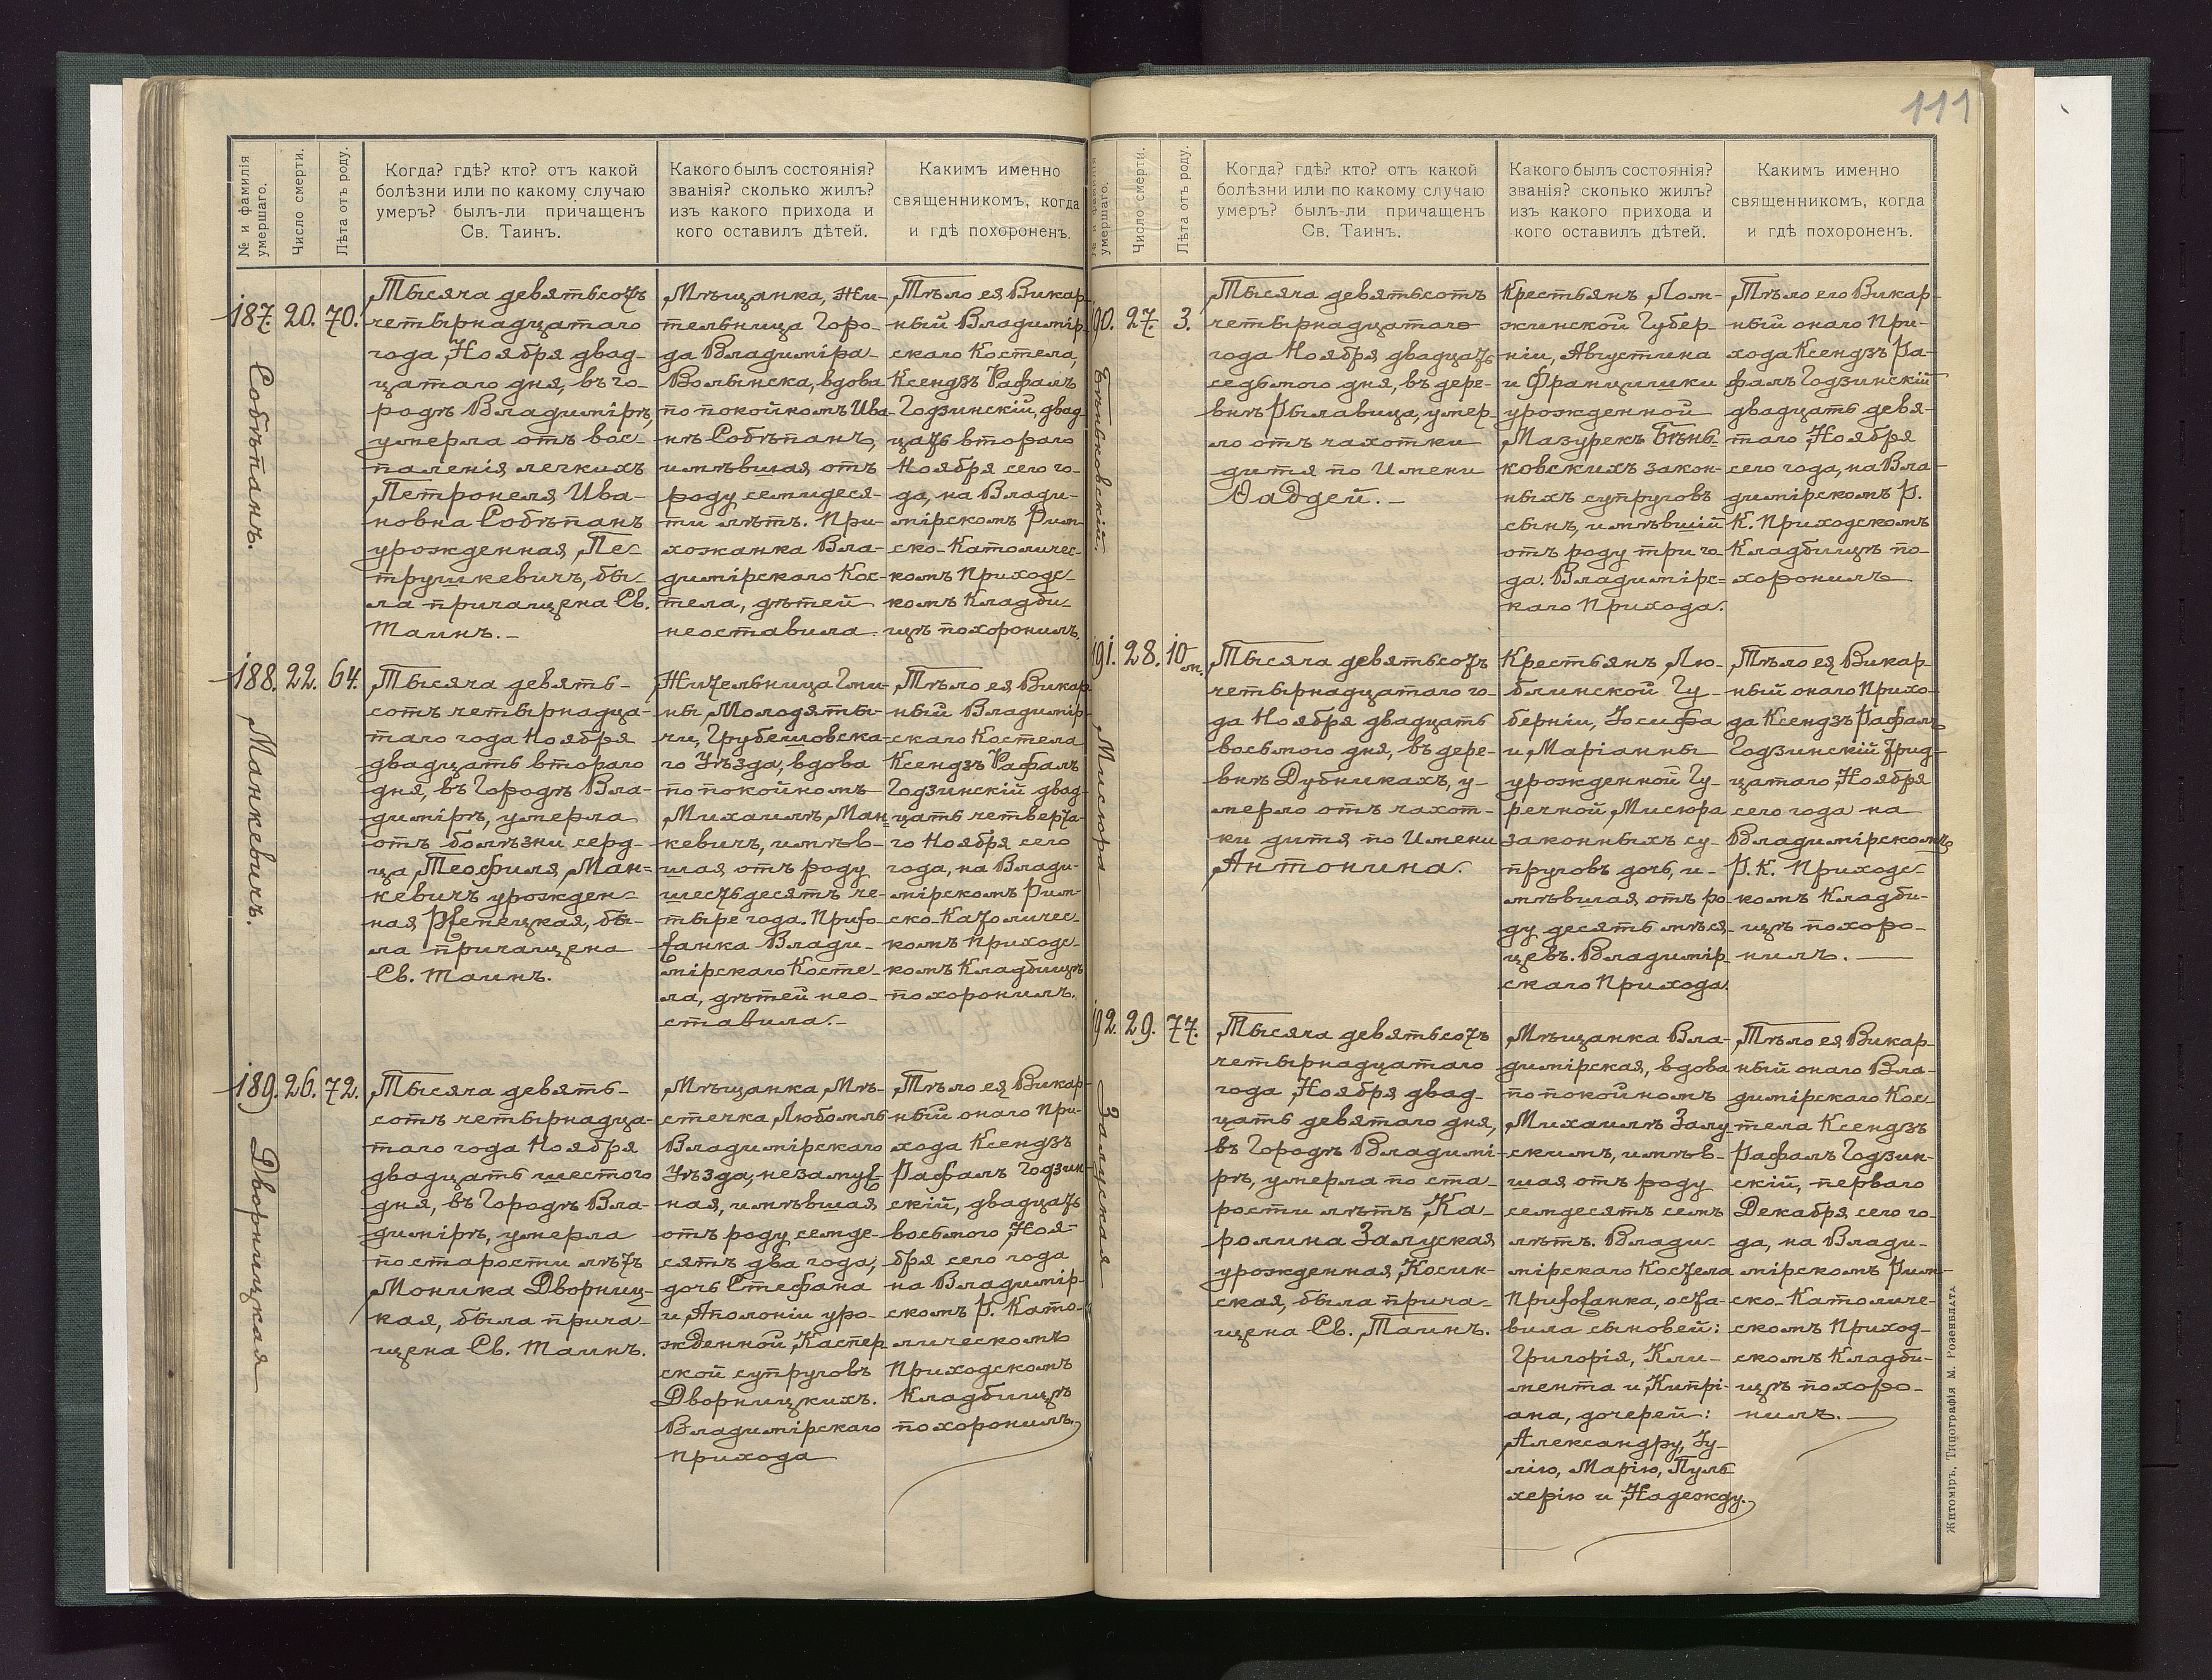 111
№ и фамилія умершаго.
Число смерти.
Лѣта отъ роду.
Когда? гдѣ? кто? отъ какой
болѣзни или по какому случаю
умеръ? былъ-ли причащенъ
Св. Таинъ.
Какого былъ состоянія?
званія? сколько жилъ?
изъ какого прихода и
кого оставилъ дѣтей.
Какимъ именно
священникомъ, когда
и гдѣ похороненъ.
187. 20. 70.
Собѣпанъ.
Тысяча девятьсотъ
четырнадцатаго
года, Ноября двад-
цатаго дня, въ го-
родѣ Владимірѣ,
умерла отъ вос-
паленія легкихъ
Петронеля Ива-
новна Собѣпанъ
урожденная, Пе-
трушкевичъ, бы-
ла причащена Св.
Таинъ.-
Мѣщанка, Жи-
тельница Горо-
да Владиміра-
Волынска, вдова
по покойномъ Ива-
нѣ Собѣпанъ,
имѣвшая отъ
роду семидеся-
ти лѣтъ. При-
хожанка Вла-
димірскаго Кос-
тела, дѣтей
неоставила.
Тѣло ея Викар-
ный Владимір-
скаго Костела,
Ксендзъ Рафалъ
Годзинскій, двад-
цать второго
Ноября сего го-
да, на Влади-
мірскомъ Рим-
ско-Католичес-
комъ Приходс-
комъ Кладби-
щѣ похоронилъ.
188. 22. 64.
Манкевичъ.
Тысяча девять-
сотъ четырнадца-
таго года Ноября
двадцать второго
дня, въ Городѣ Вла-
димірѣ, умерла
отъ болѣзни серд-
ца, Теофиля, Ман-
кевичъ урожден-
ная Ржепецкая, бы-
ла причащена
Св. Таинъ.
Жительница Гми-
ны, Молодяты-
чи, Грубешовска-
го Уѣзда, вдова
по покойномъ
Михаилѣ, Ман-
кевичъ, имѣв-
шая отъ роду
шестьдесятъ че-
тыре года. Прихо-
жанка Влади-
мірскаго Косте-
ла, дѣтей нео-
ставила.-
Тѣло ея Викар-
ный Владимір-
скаго Костела
Ксендзъ Рафалъ
Годзинскій двад-
цать четверта-
го Ноября сего
года, на Влади-
мірскомъ Рим-
ско-Католичес-
комъ Приходс-
комъ Кладбищѣ
похоронилъ.
189. 26. 72.
Дворницкая
Тысяча девять-
сотъ четырнадца-
таго года Ноября
двадцать шестого
дня, въ Городѣ Вла-
димірѣ, умерла
по старости лѣтъ
Моника Дворниц-
кая, была прича-
щена Св. Таинъ.
Мѣщанка, Мѣ-
стечка, Любомль
Владимірскаго
Уѣзда, незамуж-
ная, имѣвшая
отъ роду семде-
сятъ два года,
дочь Стефана
и Аполоніи уро-
жденной, Каспер-
ской супруговъ
Дворницкихъ.
Владимірскаго
Прихода
Тѣло ея Викар-
ный онаго При-
хода Ксендзъ
Рафалъ Годзин-
скій, двадцать
восьмого, Ноя-
бря сего года
на Владимір-
скомъ Р. Като-
лическомъ
Приходскомъ
Кладбищѣ
похоронилъ.
№ и фамилія умершаго.
Число смерти.
Лѣта отъ роду.
Когда? гдѣ? кто? отъ какой
болѣзни или по какому случаю
умеръ? былъ-ли причащенъ
Св. Таинъ.
Какого былъ состоянія?
званія? сколько жилъ?
изъ какого прихода и
кого оставилъ дѣтей.
Какимъ именно
священникомъ, когда
и гдѣ похороненъ.
190. 27. 3.
Бѣньковскій.
Тысяча девятьсотъ
четырнадцатаго
года Ноября двадцать
седьмого дня, въ дере-
внѣ Рылавица, умер-
ло отъ чахотки
дитя по Имени
Фаддей.-
Крестьянъ Лом-
жинской Губер-
ніи, Августина
и Францишки
урожденной
Мазурекъ Бѣнь-
ковскихъ закон-
ныхъ супруговъ
сынъ, имѣвшій
отъ роду три го-
да. Владимірс-
каго Прихода.
Тѣло его Викар-
ный онаго При-
хода Ксендзъ Ра-
фалъ Годзинскій
двадцать девя-
таго, Ноября
сего года, на Вла-
димірскомъ Р.
К. Приходскомъ
Кладбищѣ по-
хоронилъ
191. 28. 10 м.
Мисюра
Тысяча девятьсотъ
четырнадцатаго го-
да Ноября двадцать
восьмого дня, въ дере-
внѣ Дубникахъ, у-
мерло отъ чахот-
ки дитя по Имени
Антонина.
Крестьянъ, Лю-
блинской Гу-
берніи, Іосифа
и, Маріанны
урожденной Гу-
речной, Мисюра
законныхъ су-
пруговъ дочь, и-
мѣвшая отъ ро-
ду десять мѣся-
цевъ. Владимір-
скаго Прихода.
Тѣло ея Викар-
ный онаго Прихо-
да Ксендзъ Рафалъ
Годзинскій трид-
цатаго, Ноября
сего года на
Владимірскомъ
Р. К. Приходс-
комъ Кладби-
щѣ похоро-
нилъ.
192. 29. 77.
Залуская
Тысяча девятьсотъ
четырнадцатаго
года, Ноября двад-
цать девятаго дня,
въ Городѣ Владимі-
рѣ, умерла по ста-
рости лѣтъ, Ка-
ролина Залуская
урожденная, Косин-
ская, была прича-
щена Св. Таинъ.
Мѣщанка Вла-
димірская, вдова
по покойномъ
Михаилѣ Залу-
скимъ, имѣв-
шая отъ роду
семдесятъ семь
лѣтъ. Влади-
мірскаго Костела
Прихожанка, оста-
вила сыновей:
Григорія, Кли-
мента и, Кипрі-
ана, дочерей:
Александру, Іу-
лію, Марію, Пуль-
херію и Надежду.
Тѣло ея Викар-
ный онаго Вла-
димірскаго Кос-
тела Ксендзъ
Рафалъ Годзин-
скій, перваго
Декабря сего го-
да, на Влади-
мірскомъ Рим-
ско-Католиче-
скомъ Приход-
скомъ Кладби-
щѣ похоро-
нилъ.
Житоміръ, Типографія М. Розенблата